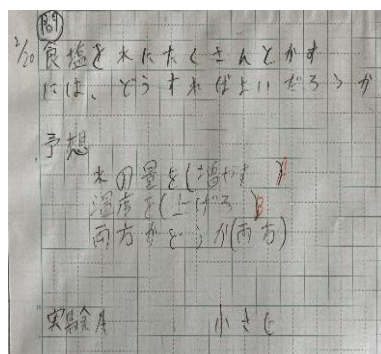 問
2/20 食塩を水にたくさんとかす
には、どうすればよいだろうか
予想
水の量を(増やす)
温度を(上げる) B
両方かどうか(両方)
実験A 小さじ